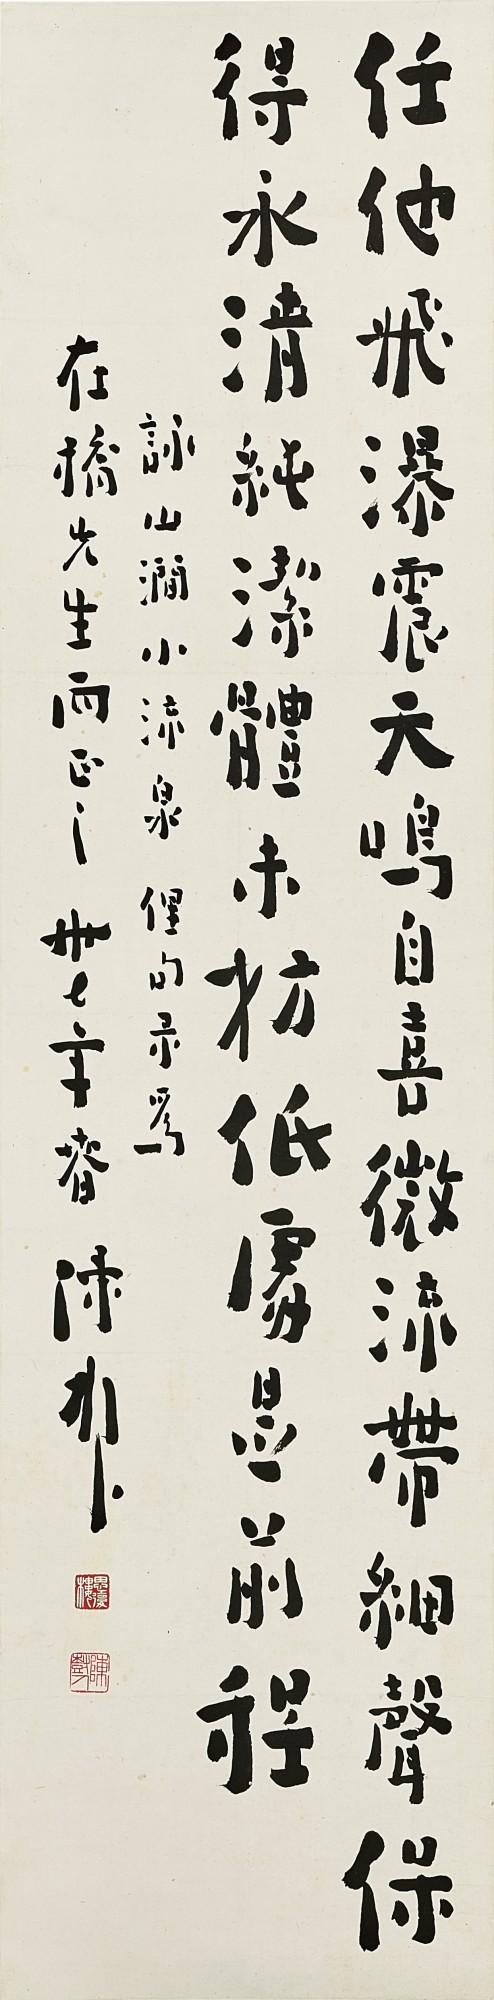 任他飛瀑震天鳴自喜微流帶細聲保
得永清純潔體未妨低處是前程
詠山澗小流泉俚句录爲
在橋先生両正之 卅七年春 陳彬
思優樓